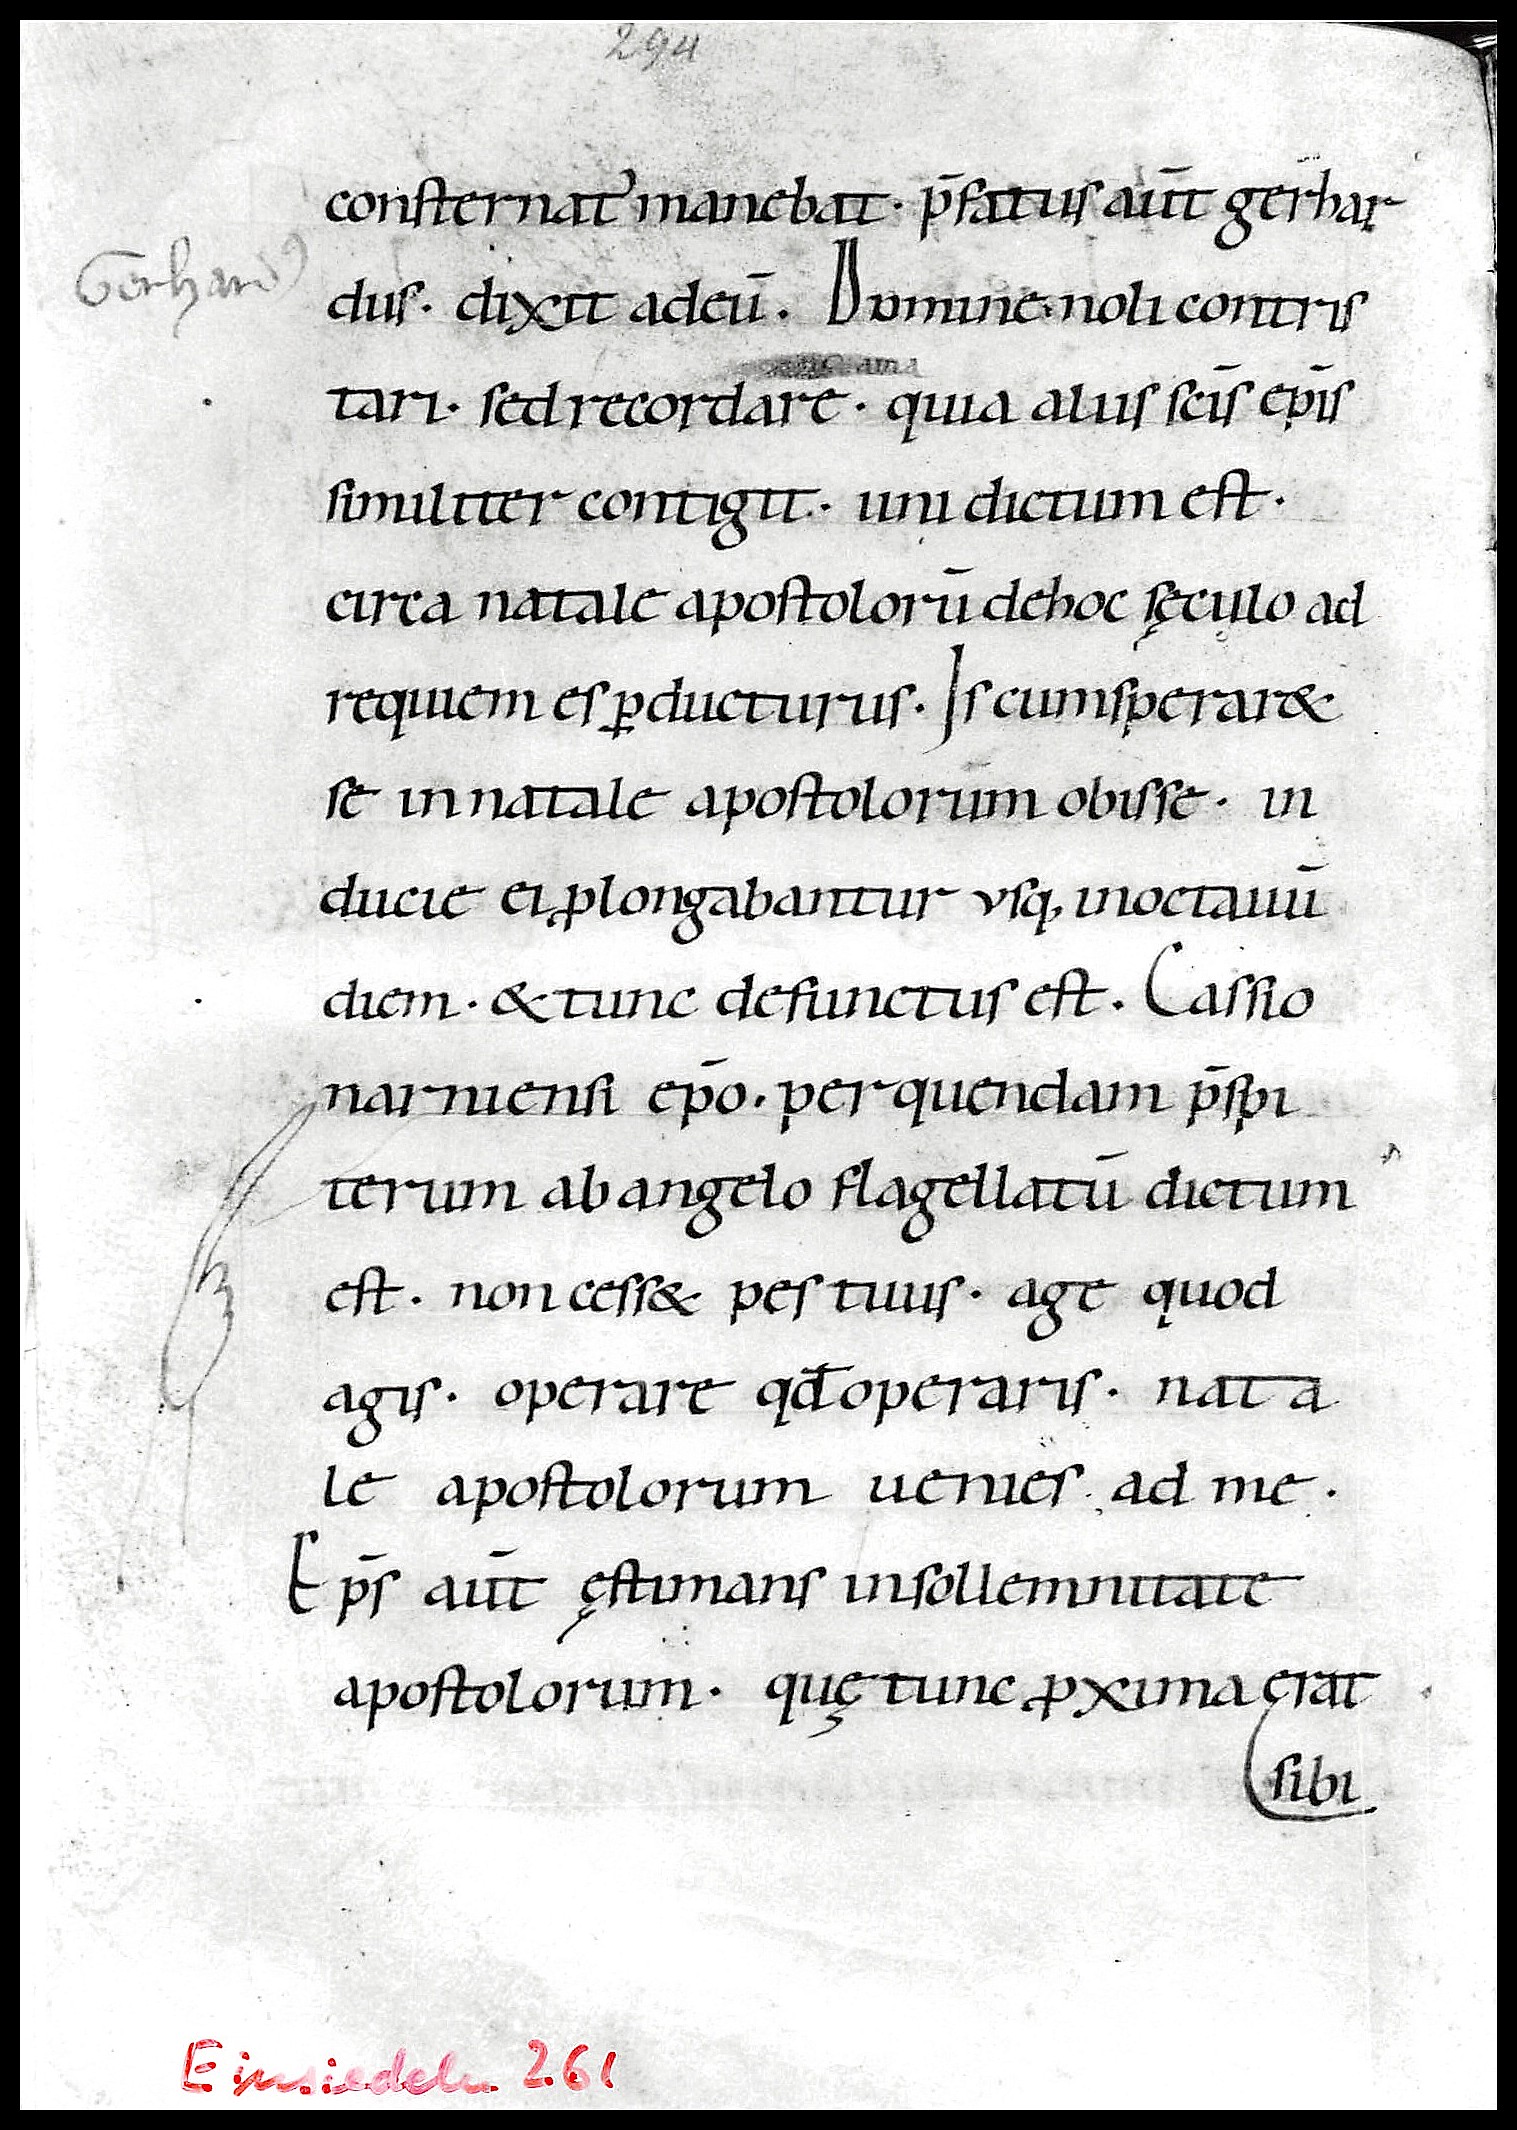 294
consternat᾽ manebat · p̄fatus aūt gerhar
Gerhard᾽
dus · dixit adeū . Domine · noli contris
tari · sed recordare · quia aliis sc̄is ep̄is
similiter contigit · uni dictum est ·
circa natale apostolorū dehoc sęculo ad
requiem es ꝑducturus · Is cumsperar&
se innatale apostolorum obisse · in
ducie ei ꝓlongabantur vsq, inoctauū
diem · & tunc defunctus est . Cassio
narniensi ep̄o . per quendam p̄spi
terum abangelo flagellatū dictum
est . non cess& pes tuus · age quod
agis · operare qđ operaris · nata
le apostolorum uenies ad me .
Ep̄s aūt ęstimans insollemnitate
apostolorum · quę tunc ꝓxima erat
sibi
Einsiedeln 261